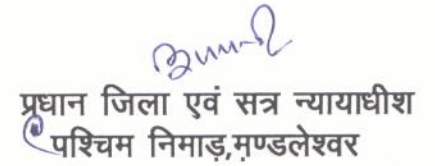 प्रधान जिला एवं सत्र न्यायाधीश
पश्चिम निमाड़,मण्डलेश्वर